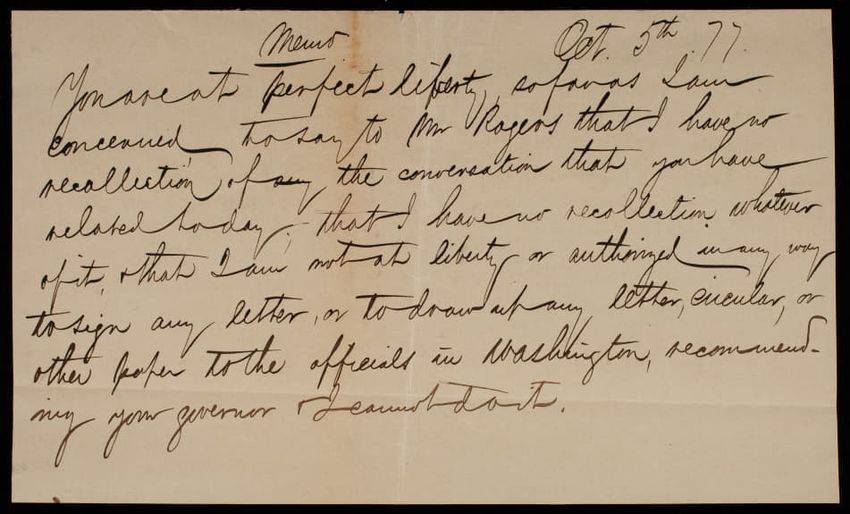 Memo Oct. 5th. 77.
You are at perfect liberty, so far as I am
concerned to say to Mr Rogers that I have no
recollection of any the conversation that you have
related to day; that I have no recollection whatever
of it, & that I am not at liberty or authorized in any way
to sign any letter, or to draw up any letter, circular, or
other paper to the officials in Washington, recommend-
ing your governor & I cannot do it.